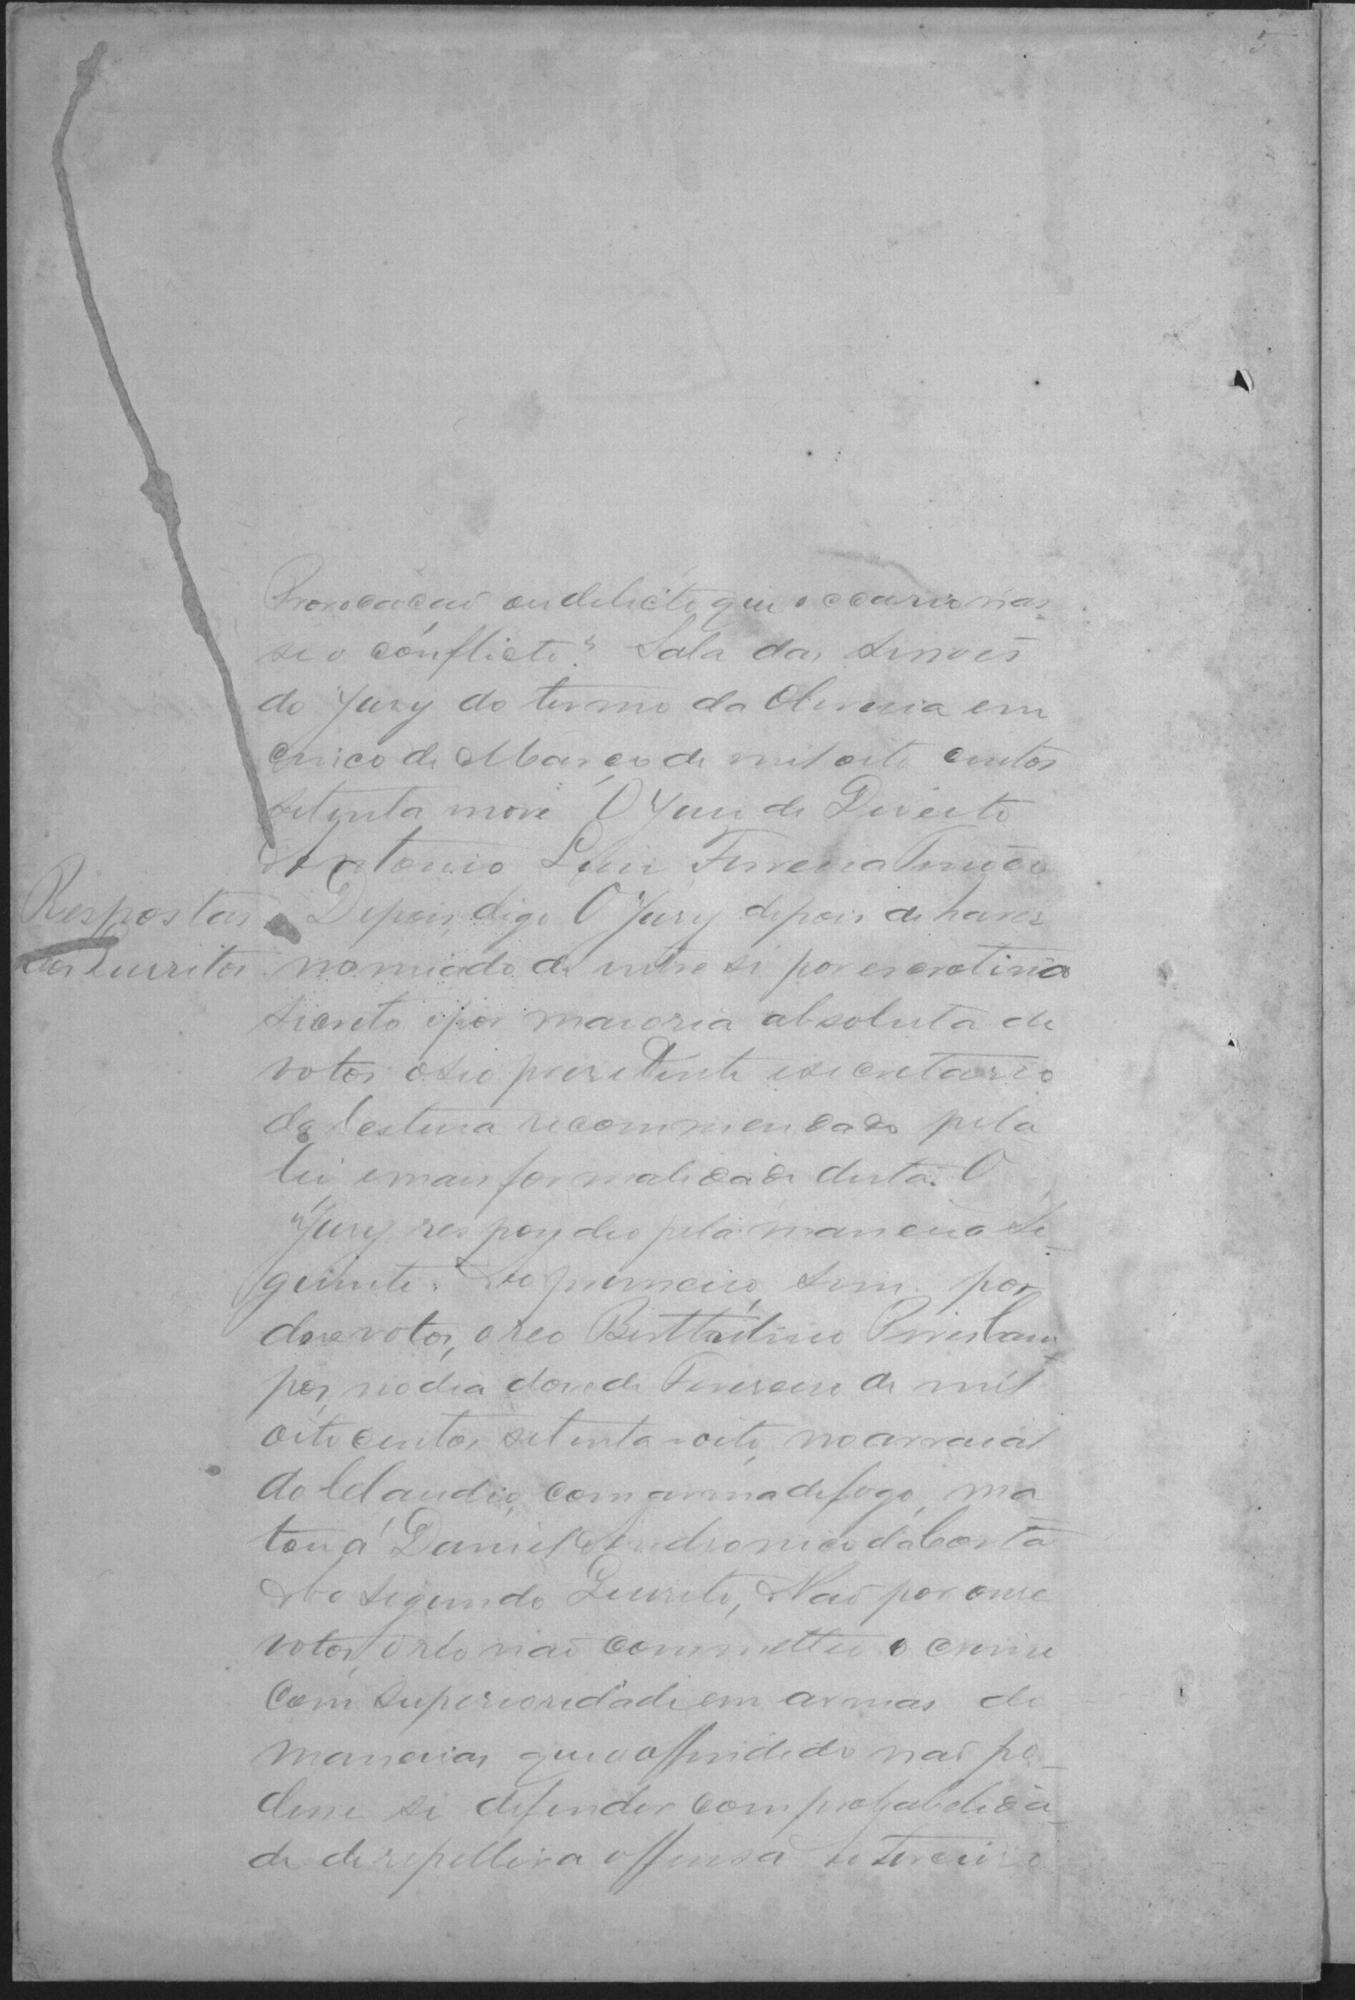 5
Provocação ou delicto que occasionas-
se o conflicto? Sala das Sessoẽs
do Jury do termo da Oliveira em
cinco de Março de mil oito centos
setenta nove O Juis de Direito
Antonio Luis Ferreira Tinôco
Respostas Depois, digo O Jury depois de haver
dos quesitos nomiado de entre si por escrotinio
sicreto e por maioria absoluta de
votos o seo prezidente e sicretario
da leitura recommendada pela
lei e mais formalidade desta. O
Jury respondeo pela maneira se-
guinte. Ao primeiro, Sim por
doze votos, o reo
no dia dose de Fevereiro de mil
oito centos setenta e oito, no arraial
do Claudio, com arma de fogo, ma
tou a Daniel Andronico da Costa
Ao segundo Quesito, Não por onze
votos, o réo não commetteo o crime
com superioridade em armas de
maneiras que o offendido não po-
desse si defender com probabelida-
de de repellir a offensa terceiro